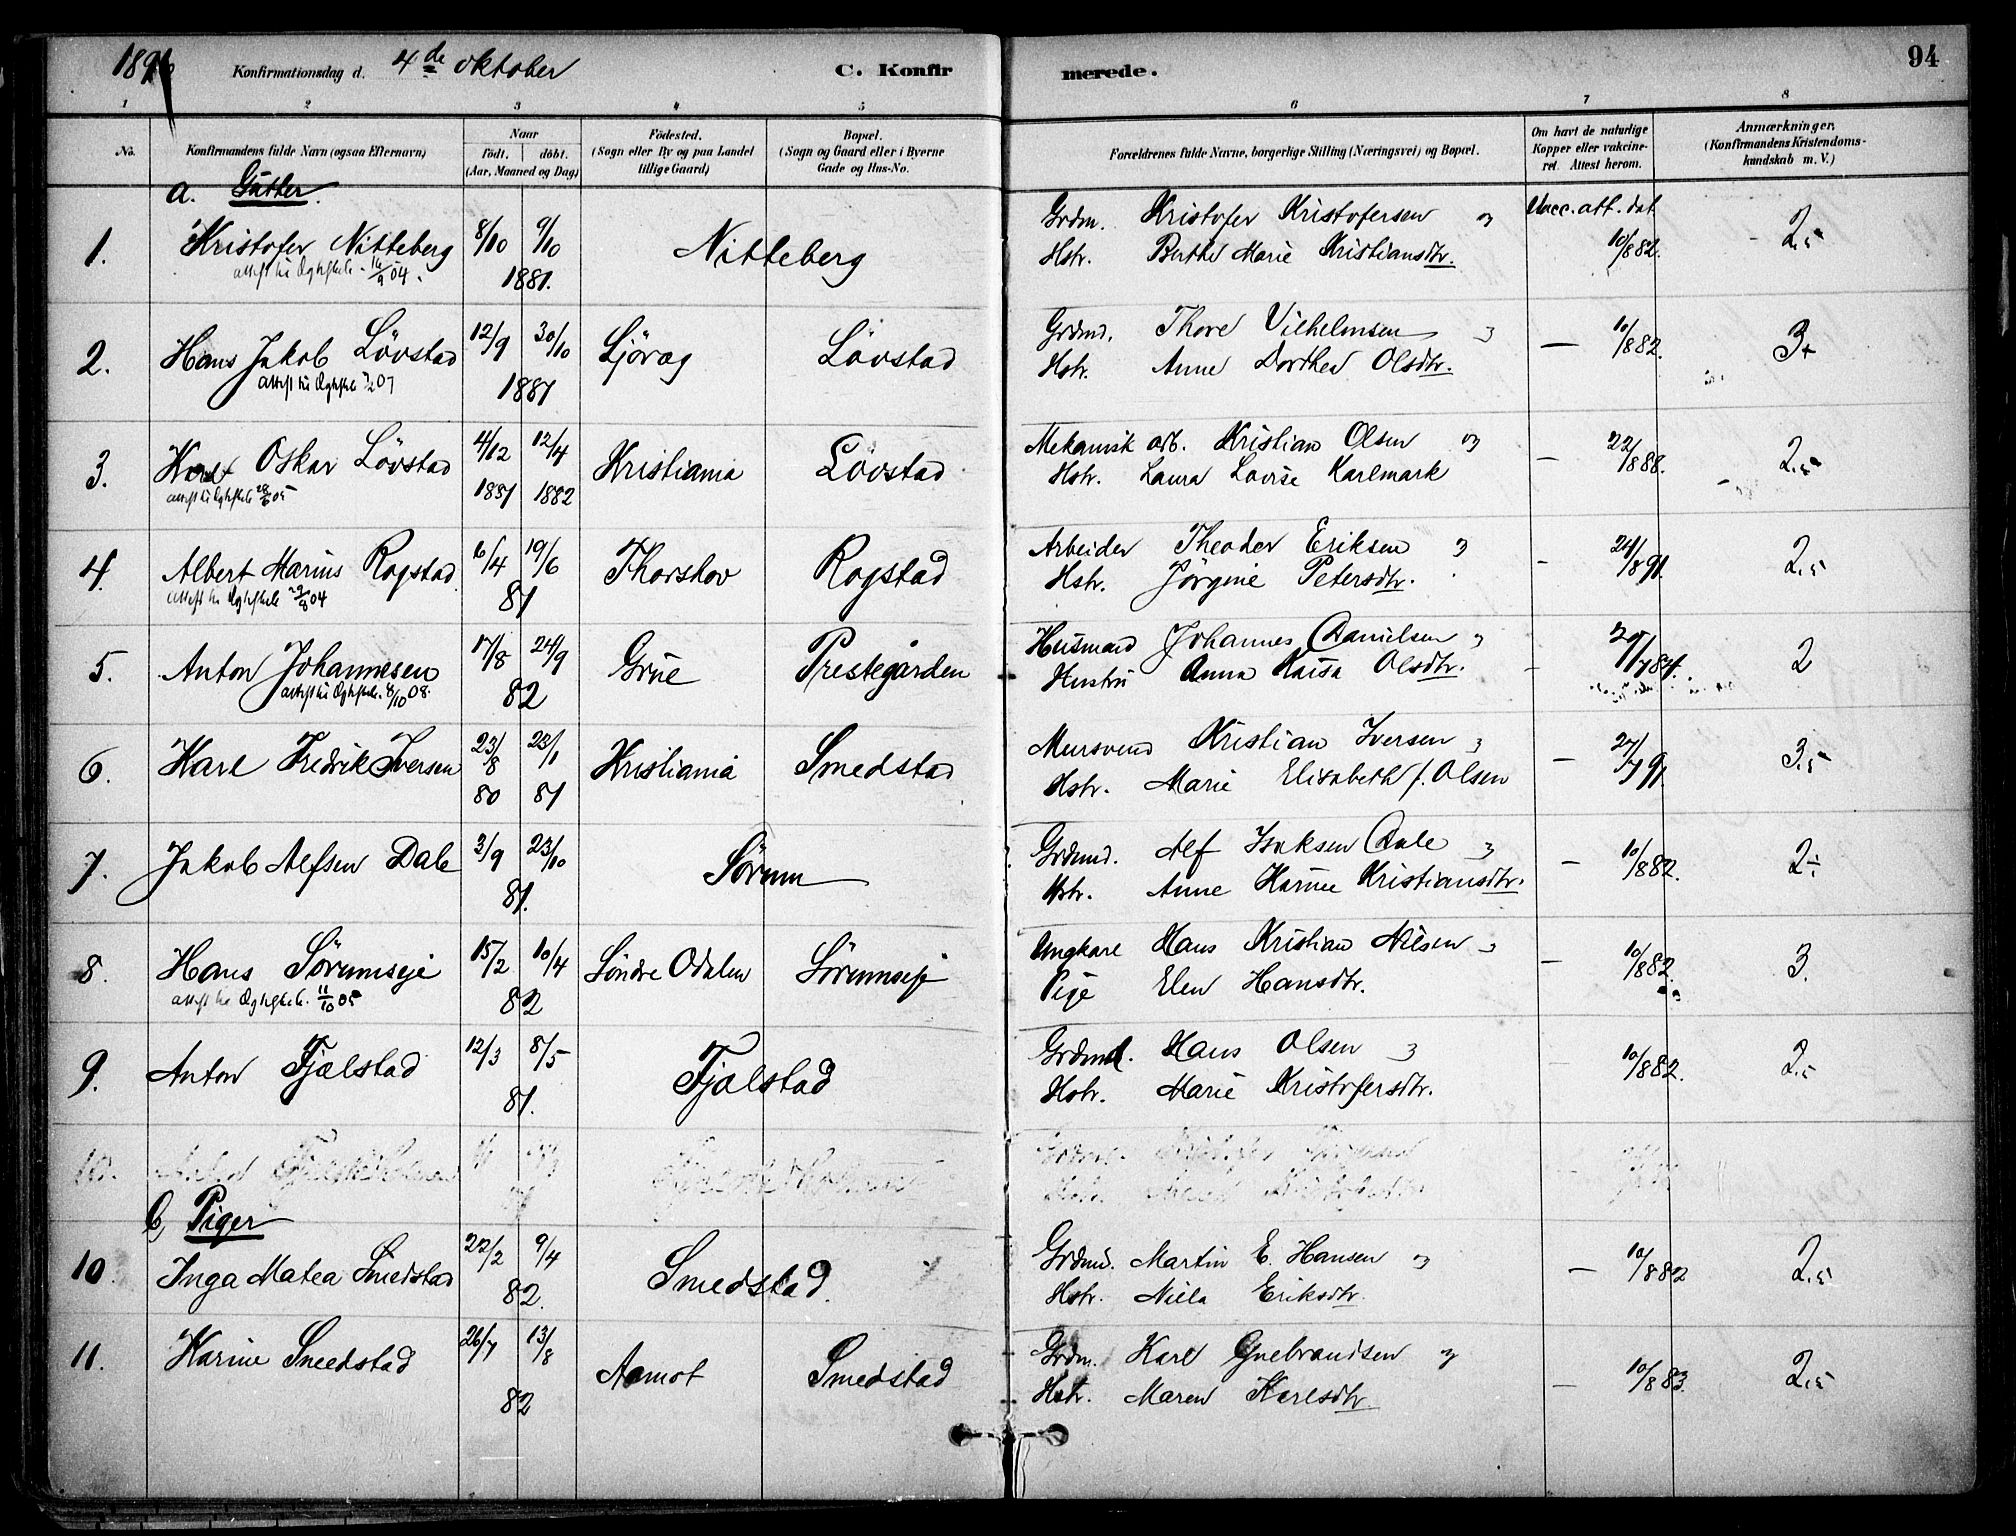 1896 Konfirmationsdag d. 4de oktober C. Konfirmerede. 94
1 2 3 4 5 6 7 8
No. Konfirmandens fulde Navn (ogsaa Efternavn) Naar født. døbt. (Aar, Maaned og Dag) Fødested. (Sogn eller By og paa Landet tillige Gaard) Bopæl. (Sogn og Gaard eller i Byerne Gade og Hus-No. Forældrenes fulde Navne, borgerlige Stilling (Næringsvei) og Bopæl. Om havt de naturlige Kopper eller vakcineret. Attest herom. Anmærkninger. (Konfirmandens Kristendomskundskab m. V.)
a. Gutter.
1. Kristofer Nitteberg 8/10 9/10 1881. Nitteberg Grdm. Kristofer Kristofersen og Vacc. att. dat. 10/8 82. 2.5
16/2 04. Hstr. Berthe Marie Kristiansdtr.
2. Hans Jakob Lövstad 12/9 30/10 1881 Lövstad Grdmd. Thore Vilhelmsen og — 10/8 82. 3+
Hstr. Anne Dorthea Olsdtr.
3. Oskar Lövstad 4/12 1881 12/4 1882 Kristiania Lövstad Mekanisk arb. Kristian Olsen og — 22/8 88. 2.5
Hstr. Laura Lovise Karlmark
4. Albert Marius Rogstad 16/4 19/6 81 Thorshov Rogstad Arbeider Theodor Eriksen og - 24/8 91. 2.5
29/8 04 Hstr. Jörgine Petersdtr.
5. Anton Johannesen 17/8 24/9 82 Grue Prestegården Husmand Johannes Danielsen og - 2
8/10 08. Hustru Anna Kaisa Olsdtr.
6. Karl Fredrik Iversen 23/8 80 23/1 81 Kristiania Smedstad Mursvend Kristian Iversen og — 27/7 91. 3.5
Hstr. Marie Elisabeth f. Olsen
7. Jakob Alfsen Dale 3/9 23/10 81. Sörum Grdmd. Alf Isaksen Dale og — 10/8 82. 2÷
Hstr. Anne Karine Kristiansdtr.
8. Hans Sörumseje 15/2 10/4 82 Söndre Odalen Sörumseje Ungkarl Hans Kristian Nilsen og — 10/8 82. 3.
11/10 05 Pige Elen Hansdtr.
9. Anton Fjælstad 12/3 8/5 81. Fjælstad Grdmd. Hans Olsen og 10/8 82. 2.5
Hstr. Marie Kristofersdtr.
10.
b, Piger
10 Inga Matea Smedstad 22/2 9/4 82. Smedstad. Grdmd. Martin E. Hansen og — 10/8 82 2.5
Hstr. Niela Eriksdtr.
11. Karine Smedstad 26/7 13/8 82 Aamot Smedstad Grdm. Karl Gulbrandsen og — 10/8 83. 2.5
Hstr. Maren Karlsdtr.